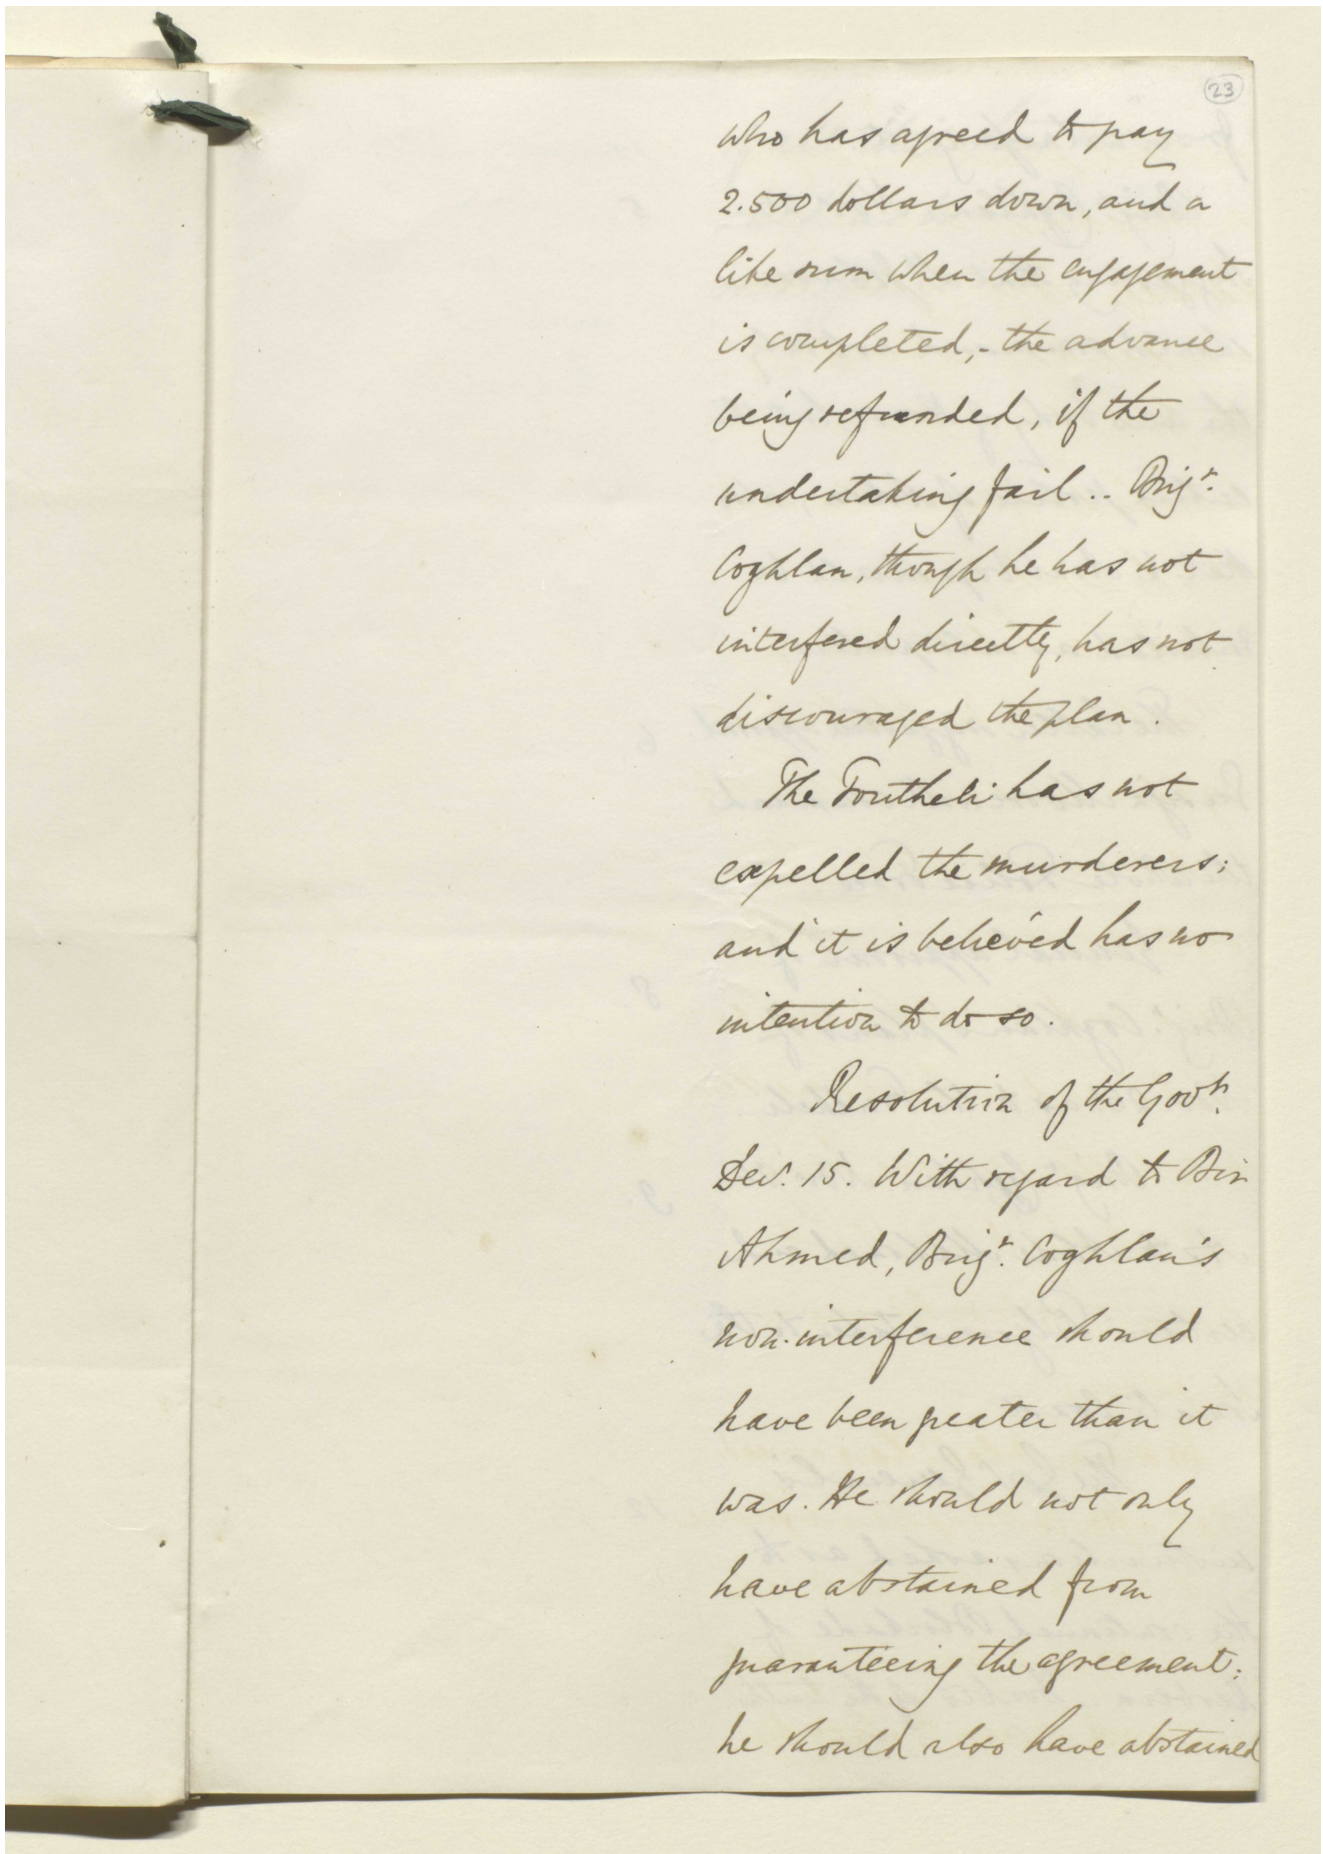 23
who has agreed to pay
2.500 dollars down, and a
like sum when the engagement
is completed,- the advance
being refunded, if the
undertaking fail .. Brigr.
Coghlan, though he has not
interfered directly, has not
discouraged the plan.
The Foutheli has not
expelled the murderers;
and it is believed has no
intention to do so.
Resolution of the Govt.
Decr. 15. With regard to Bin
Ahmed, Brigr. Coghlan's
non-interference should
have been greater than it
was. He should not only
have abstained from
guaranteeing the agreement:
he should also have abstained